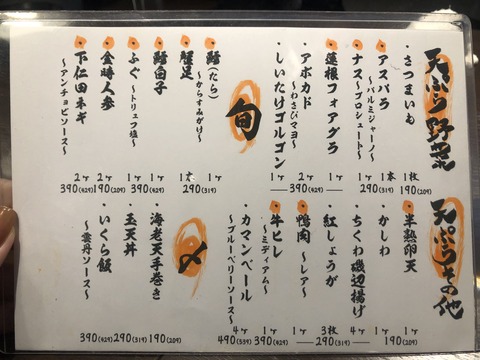 天ぷら野菜
・さつまいも 1枚 190(209)
・アスパラ ～パルミジャーノ～ 1本
・ナス ～プロシュート～ 1ヶ 290(319)
・蓮根フォアグラ 1ヶ
・アボカド ～わさびマヨ～ 2ヶ 390(429)
・しいたけゴルゴン 1ヶ
旬
・鱈(たら) ～からすみがけ～ 1ヶ
・蟹足 1本 290(319)
・鱈白子 1ヶ
・ふぐ ～トリュフ塩～ 1ヶ 390(429)
・金時人参 2ヶ 190(209)
・下仁田ネギ ～アンチョビソース～ 2ヶ 390(429)
天ぷらその他
・半熟卵天 1ヶ 190(209)
・かしわ 1ヶ
・ちくわ磯辺揚げ 4ヶ
・紅しょうが 3枚 290(319)
・鴨肉 ～レア～ 1ヶ
・牛ヒレ ～ミディアム～ 1ヶ 390(429)
・カマンベール ～ブルーベリーソース～ 4ヶ 490(539)
〆
・海老天手巻き 190(209)
・玉天丼 290(319)
・いくら飯 ～雲丹ソース～ 390(429)